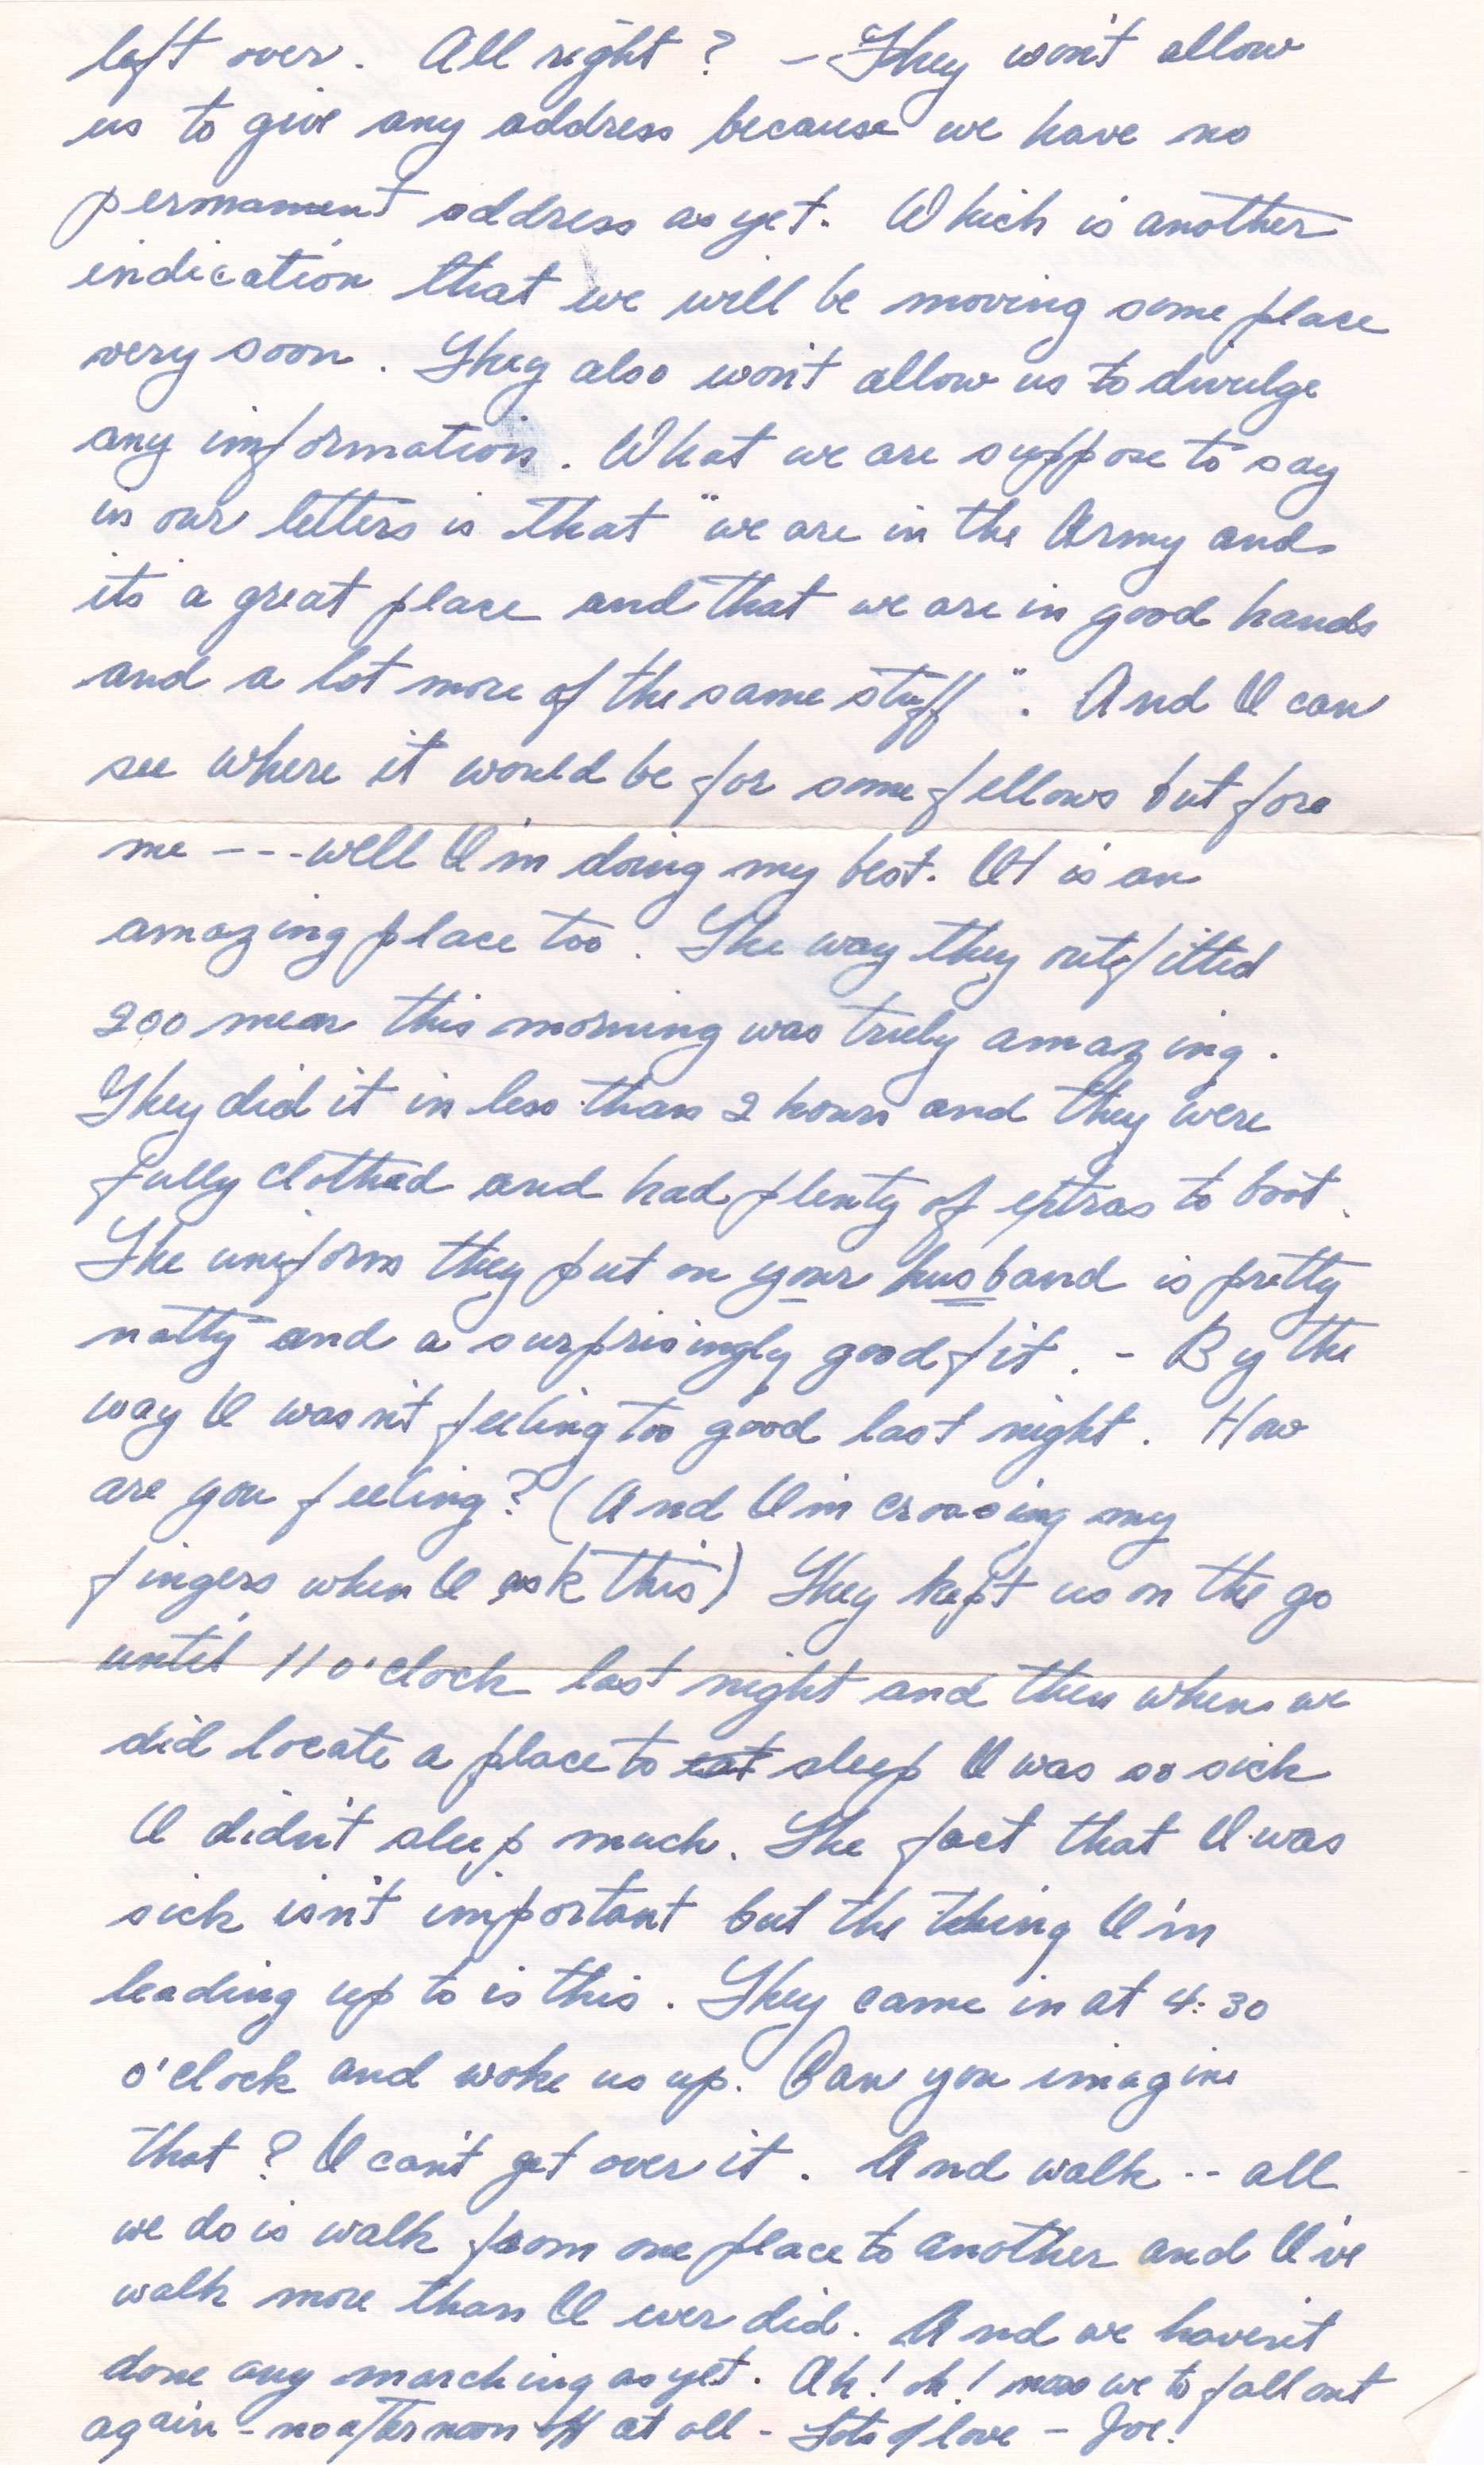 left over. All right? - They won't allow
us to give any address because we have no
permament address as yet. Which is another
indication that we will be moving some place
very soon. They also won't allow us to divulge
any information. What we are suppose to say
in our letters is that "we are in the Army and
its a great place and that we are in good hands
and a lot more of the same stuff". And I can
see where it would be for some fellows but for
me --- well I'm doing my best. It is an
amazing place too. The way they outfitted
200 men this morning was truly amazing.
They did it in less than 2 hours and they were
fully clothed and had plenty of extras to boot.
The uniform they put on your husband is pretty
natty and a surprisingly good fit. - By the
way I wasn't feeling too good last night. How
are you feeling? (And I'm crossing my
fingers when I ask this) They kept us on the go
until 11 o'clock last night and then when we
did locate a place to eat sleep I was so sick
I didn't sleep much. The fact that I was
sick isn't important but the thing I'm
leading up to is this. They came in at 4:30
o'clock and woke us up. Can you imagine
that? I can't get over it. And walk -- all
we do is walk from one place to another and I've
walk more than I ever did. And we haven't
done any marching as yet. Oh! oh! now we to fall out
again - no afternoon off at all - Lots of love - Joe!